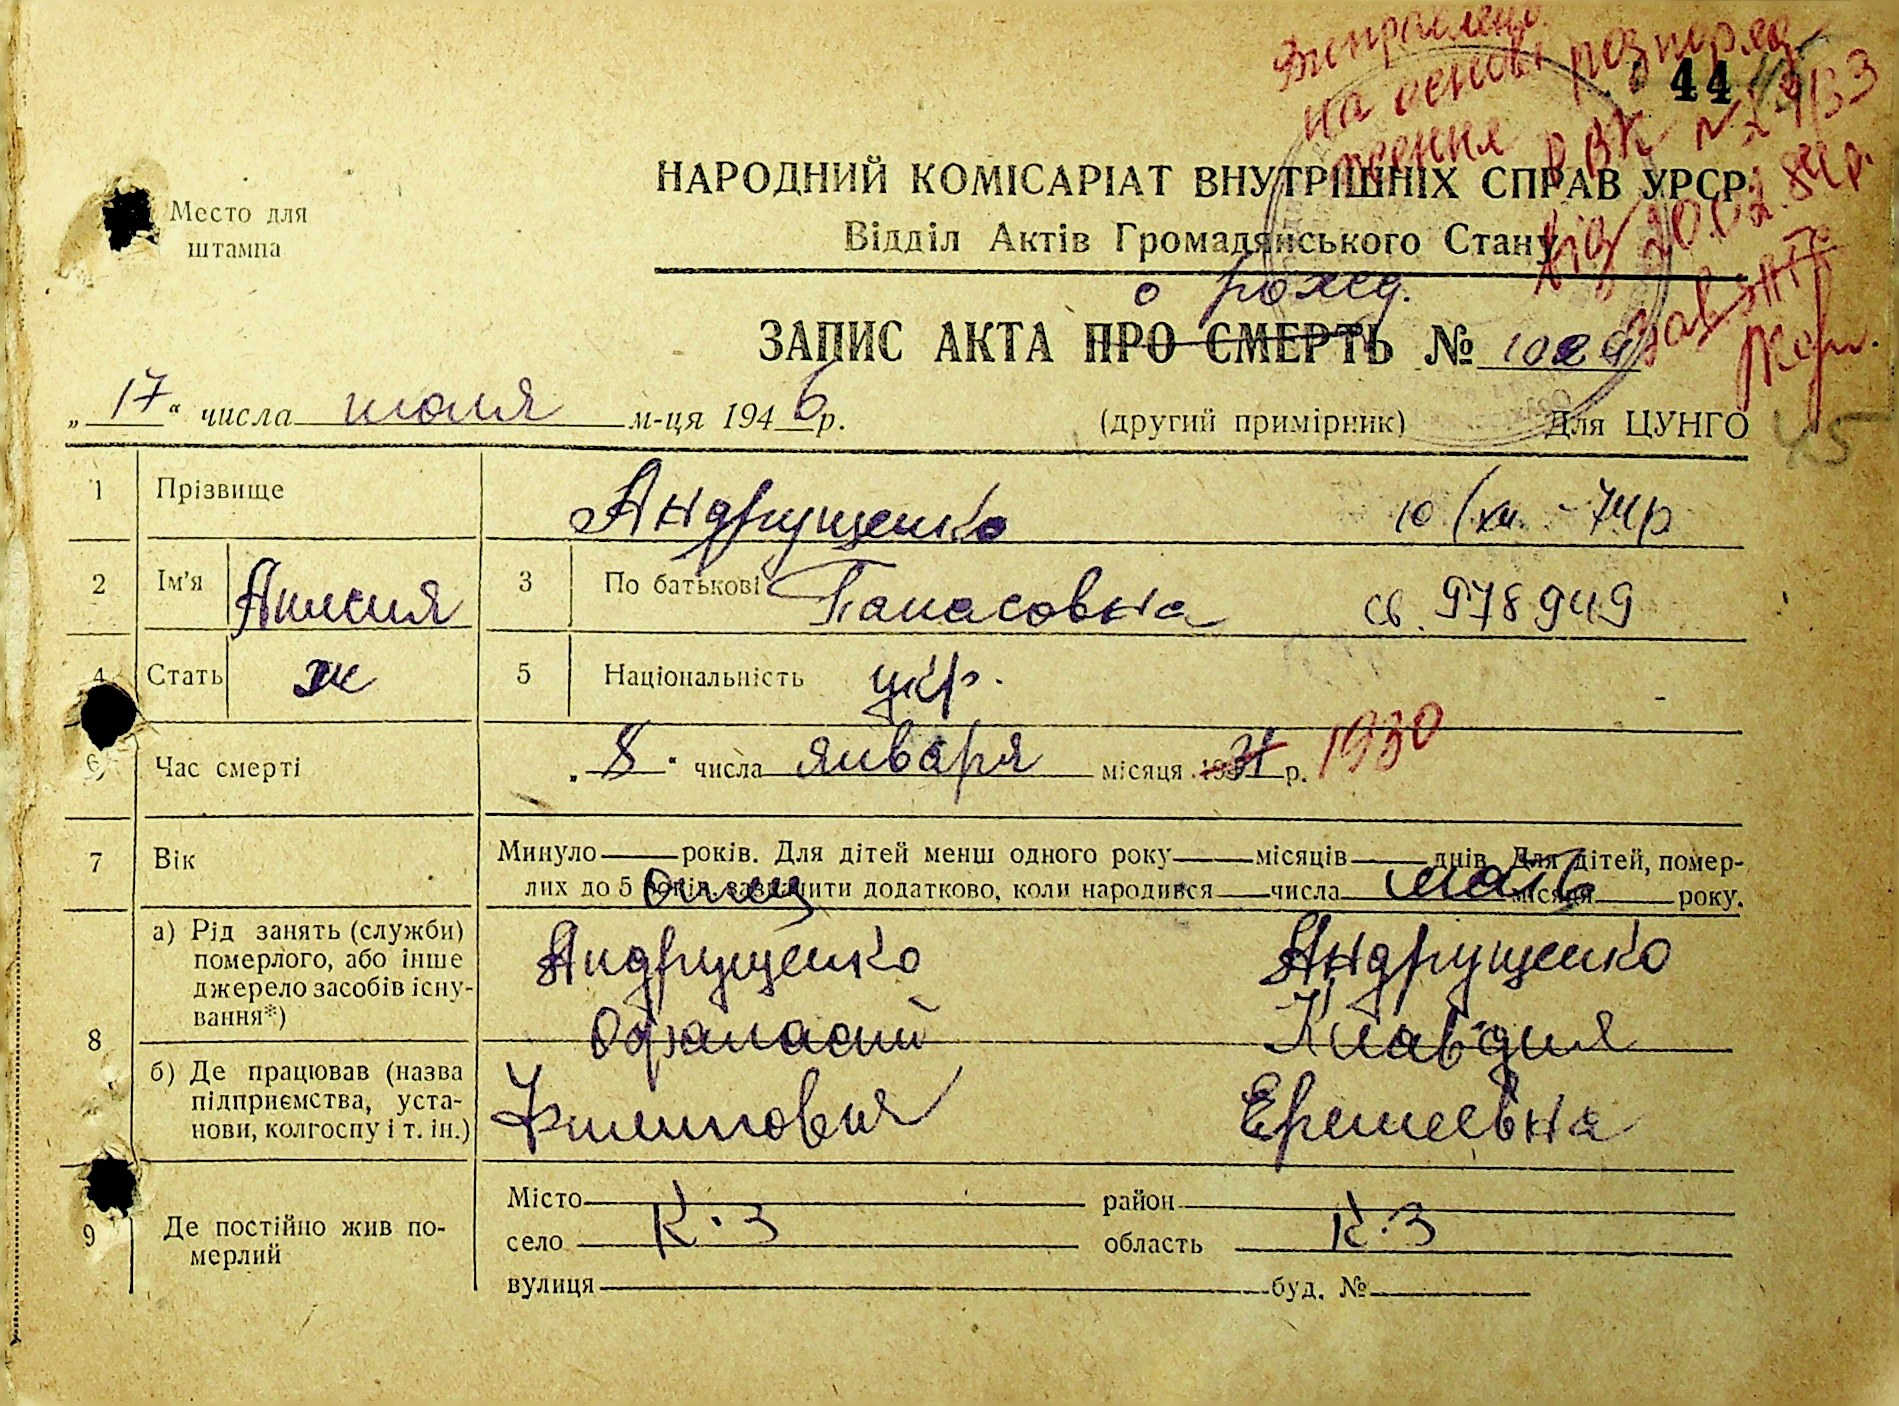 Виправлено
на основі розпоряд
ження РВК № 29/33
від 20.02.84р.
зав. ЗАГС
44
45
Место для
штампа
НАРОДНИЙ КОМІСАРІАТ ВНУТРІШНІХ СПРАВ УРСР
Відділ Актів Громадянського Стану
о рожд.
ЗАПИС АКТА ПРО СМЕРТЬ № 1029
„ 17 “ числа июля м-ця 1946 р. (другий примірник) Для ЦУНГО
45
1 Прізвище Андрущенко 10/XII - 74р
2 Ім'я Анисия 3 По батькові Панасовна св. 978949
4 Стать ж 5 Національність укр.
6 Час смерті „ 8 " числа января місяця 1931 р. 1930
7 Вік Минуло ___ років. Для дітей менш одного року ___ місяців ___ днів. Для дітей, помер-
лих до 5 років, зазначити додатково, коли народився ___ числа ___ місяця ___ року.
отец мать
8 а) Рід занять (служби)
померлого, або інше
джерело засобів існу-
вання*)
Андрущенко Андрущенко
Офанасий Клавдия
б) Де працював (назва
підприємства, уста-
нови, колгоспу і т. ін.)
Филипович Еремеевна
9 Де постійно жив по-
мерлий
Місто ___ район ___
село К.З область К.З
вулиця ___ буд. № ___